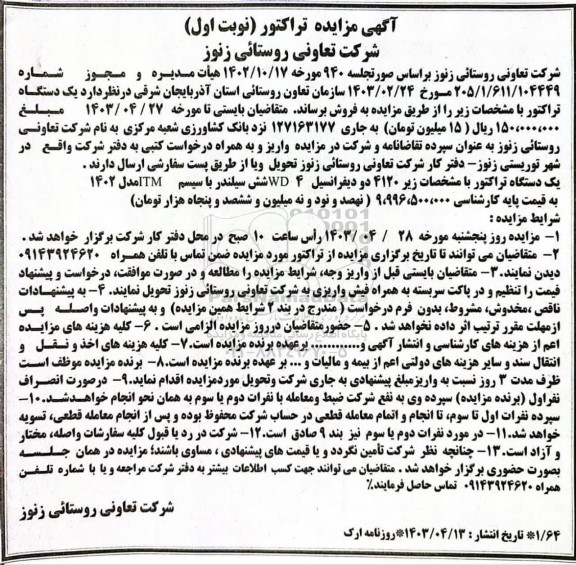 آگهی مزایده تراکتور (نوبت اول)
شرکت تعاونی روستائی زنوز
شرکت تعاونی روستائی زنوز براساس صورتجلسه ۹۴۰ مورخه ۱۴۰۲/۱۰/۱۷ هیأت مدیره و مجوز شماره
۲۰۵/۱/۶۱۱/۱۰۴۴۴۹ مورخ ۱۴۰۳/۰۲/۲۴ سازمان تعاون روستائی استان آذربایجان شرقی درنظردارد یک دستگاه
تراکتور با مشخصات زیر را از طریق مزایده به فروش برساند. متقاضیان بایستی تا مورخه ۲۷ /۰۴ /۱۴۰۳ مبلغ
۱۵۰،۰۰۰،۰۰۰ ریال ( ۱۵ میلیون تومان) به جاری ۱۲۷۱۶۳۱۷۷ نزد بانک کشاورزی شعبه مرکزی به نام شرکت تعاونی
روستائی زنوز به عنوان سپرده تقاضانامه و شرکت در مزایده واریز و به همراه درخواست کتبی به دفتر شرکت واقع در
شهر توریستی زنوز- دفتر کار شرکت تعاونی روستائی زنوز تحویل ویا از طریق پست سفارشی ارسال دارند .
یک دستگاه تراکتور با مشخصات زیر ۴۱۲۰ دو دیفرانسیل ۴ WDشش سیلندر با سیسم ITMمدل ۱۴۰۲
به قیمت پایه کارشناسی ۹،۹۹۶،۵۰۰،۰۰۰ ( نهصد و نود و نه میلیون و ششصد و پنجاه هزار تومان)
شرایط مزایده :
۱- مزایده روز پنجشنبه مورخه ۲۸ / ۰۴ /۱۴۰۳ رأس ساعت ۱۰ صبح در محل دفتر کار شرکت برگزار خواهد شد .
۲- متقاضیان می توانند تا تاریخ برگزاری مزایده از تراکتور مورد مزایده ضمن تماس با تلفن همراه ۰۹۱۴۳۹۲۴۶۲۰
دیدن نمایند.۳- متقاضیان بایستی قبل از واریز وجه، شرایط مزایده را مطالعه و در صورت موافقت، درخواست و پیشنهاد
قیمت را تنظیم و در پاکت سربسته به همراه فیش واریزی به شرکت تعاونی روستائی زنوز تحویل نمایند. ۴- به پیشنهادات
ناقص ،مخدوش، مشروط، بدون فرم درخواست ( مندرج در بند ۳ شرایط همین مزایده) و به پیشنهادات واصله پس
ازمهلت مقرر ترتیب اثر داده نخواهد شد . ۵- حضورمتقاضیان درروز مزایده الزامی است . ۶- کلیه هزینه های مزایده
اعم از هزینه های کارشناسی و انتشار آگهی و............. برعهده برنده مزایده است.۷- کلیه هزینه های اخذ و نقل و
انتقال سند و سایر هزینه های دولتی اعم از بیمه و مالیات و ... بر عهده برنده مزایده است.۸- برنده مزایده موظف است
ظرف مدت ۳ روز نسبت به واریزمبلغ پیشنهادی به جاری شرکت وتحویل موردمزایده اقدام نماید.۹- درصورت انصراف
نفراول (برنده مزایده) سپرده وی به نفع شرکت ضبط ومعامله با نفرات دوم یا سوم به همان نحو انجام خواهدشد.۱۰-
سپرده نفرات اول تا سوم، تا انجام و اتمام معامله قطعی در حساب شرکت محفوظ بوده و پس از انجام معامله قطعی، تسویه
خواهد شد.۱۱- در مورد نفرات دوم یا سوم نیز بند ۹ صادق است.۱۲- شرکت در رد یا قبول کلیه سفارشات واصله، مختار
و آزاد است.۱۳- چنانچه نظر شرکت تأمین نگردد و یا قیمت های پیشنهادی ، مساوی باشند؛ مزایده در همان جلسه
بصورت حضوری برگزار خواهد شد . متقاضیان می توانند جهت کسب اطلاعات بیشتر به دفتر شرکت مراجعه و یا با شماره تلفن
همراه ۰۹۱۴۳۹۲۴۶۲۰ تماس حاصل فرمایند.٪
شرکت تعاونی روستائی زنوز
۱/۶۴* تاریخ انتشار : ۱۴۰۳/۰۴/۱۳*روزنامه ارک